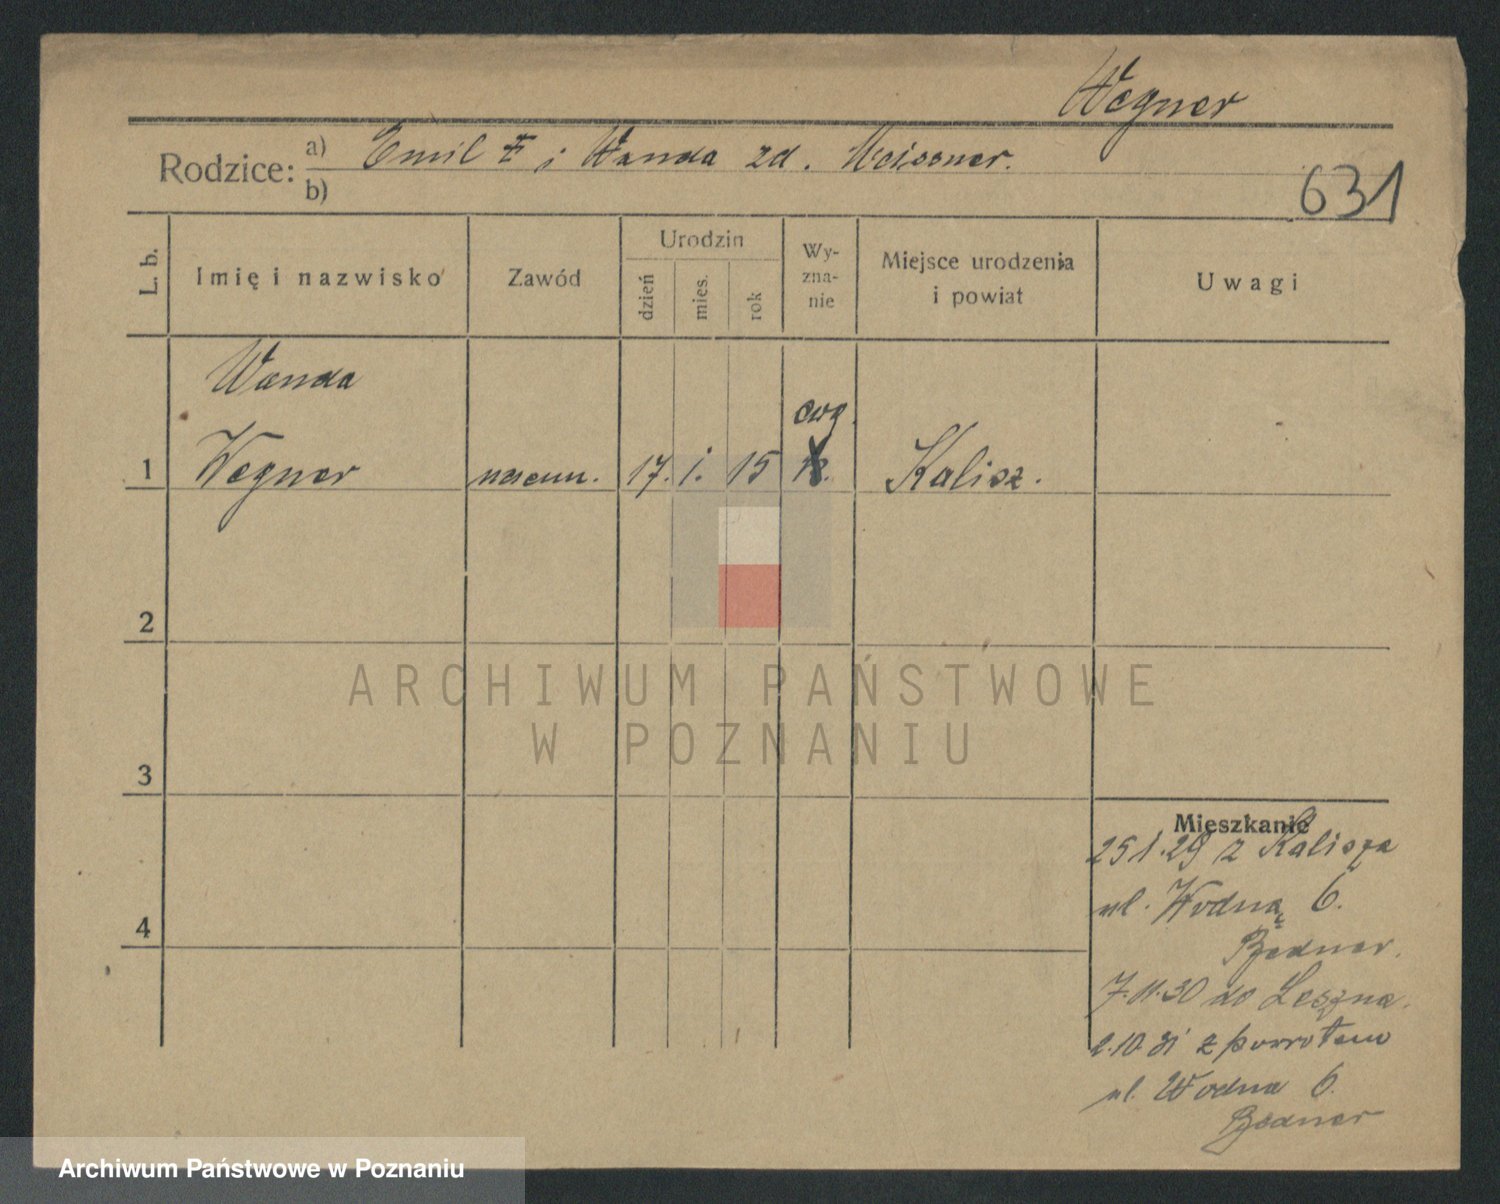 Wegner
Rodzice: a) Emil i Wanda zd. Meissner.
b)
631
L. b.
Imię i nazwisko
Zawód
Urodzin
dzień
mies.
rok
Wy-
zna-
nie
Miejsce urodzenia
i powiat
Uwagi
Wanda
ewg.
1 Wegner 17. 1. 15 Kalisz.
2
ARCHIWUM PAŃSTWOWE
W POZNANIU
3
Mieszkanie
25 1. 29 z Kalisza
ul. Wodna 6.
4
7. 11. 30 do Leszna.
2. 10. 31 z powrotem
ul. Wodna 6.
Archiwum Państwowe w Poznaniu